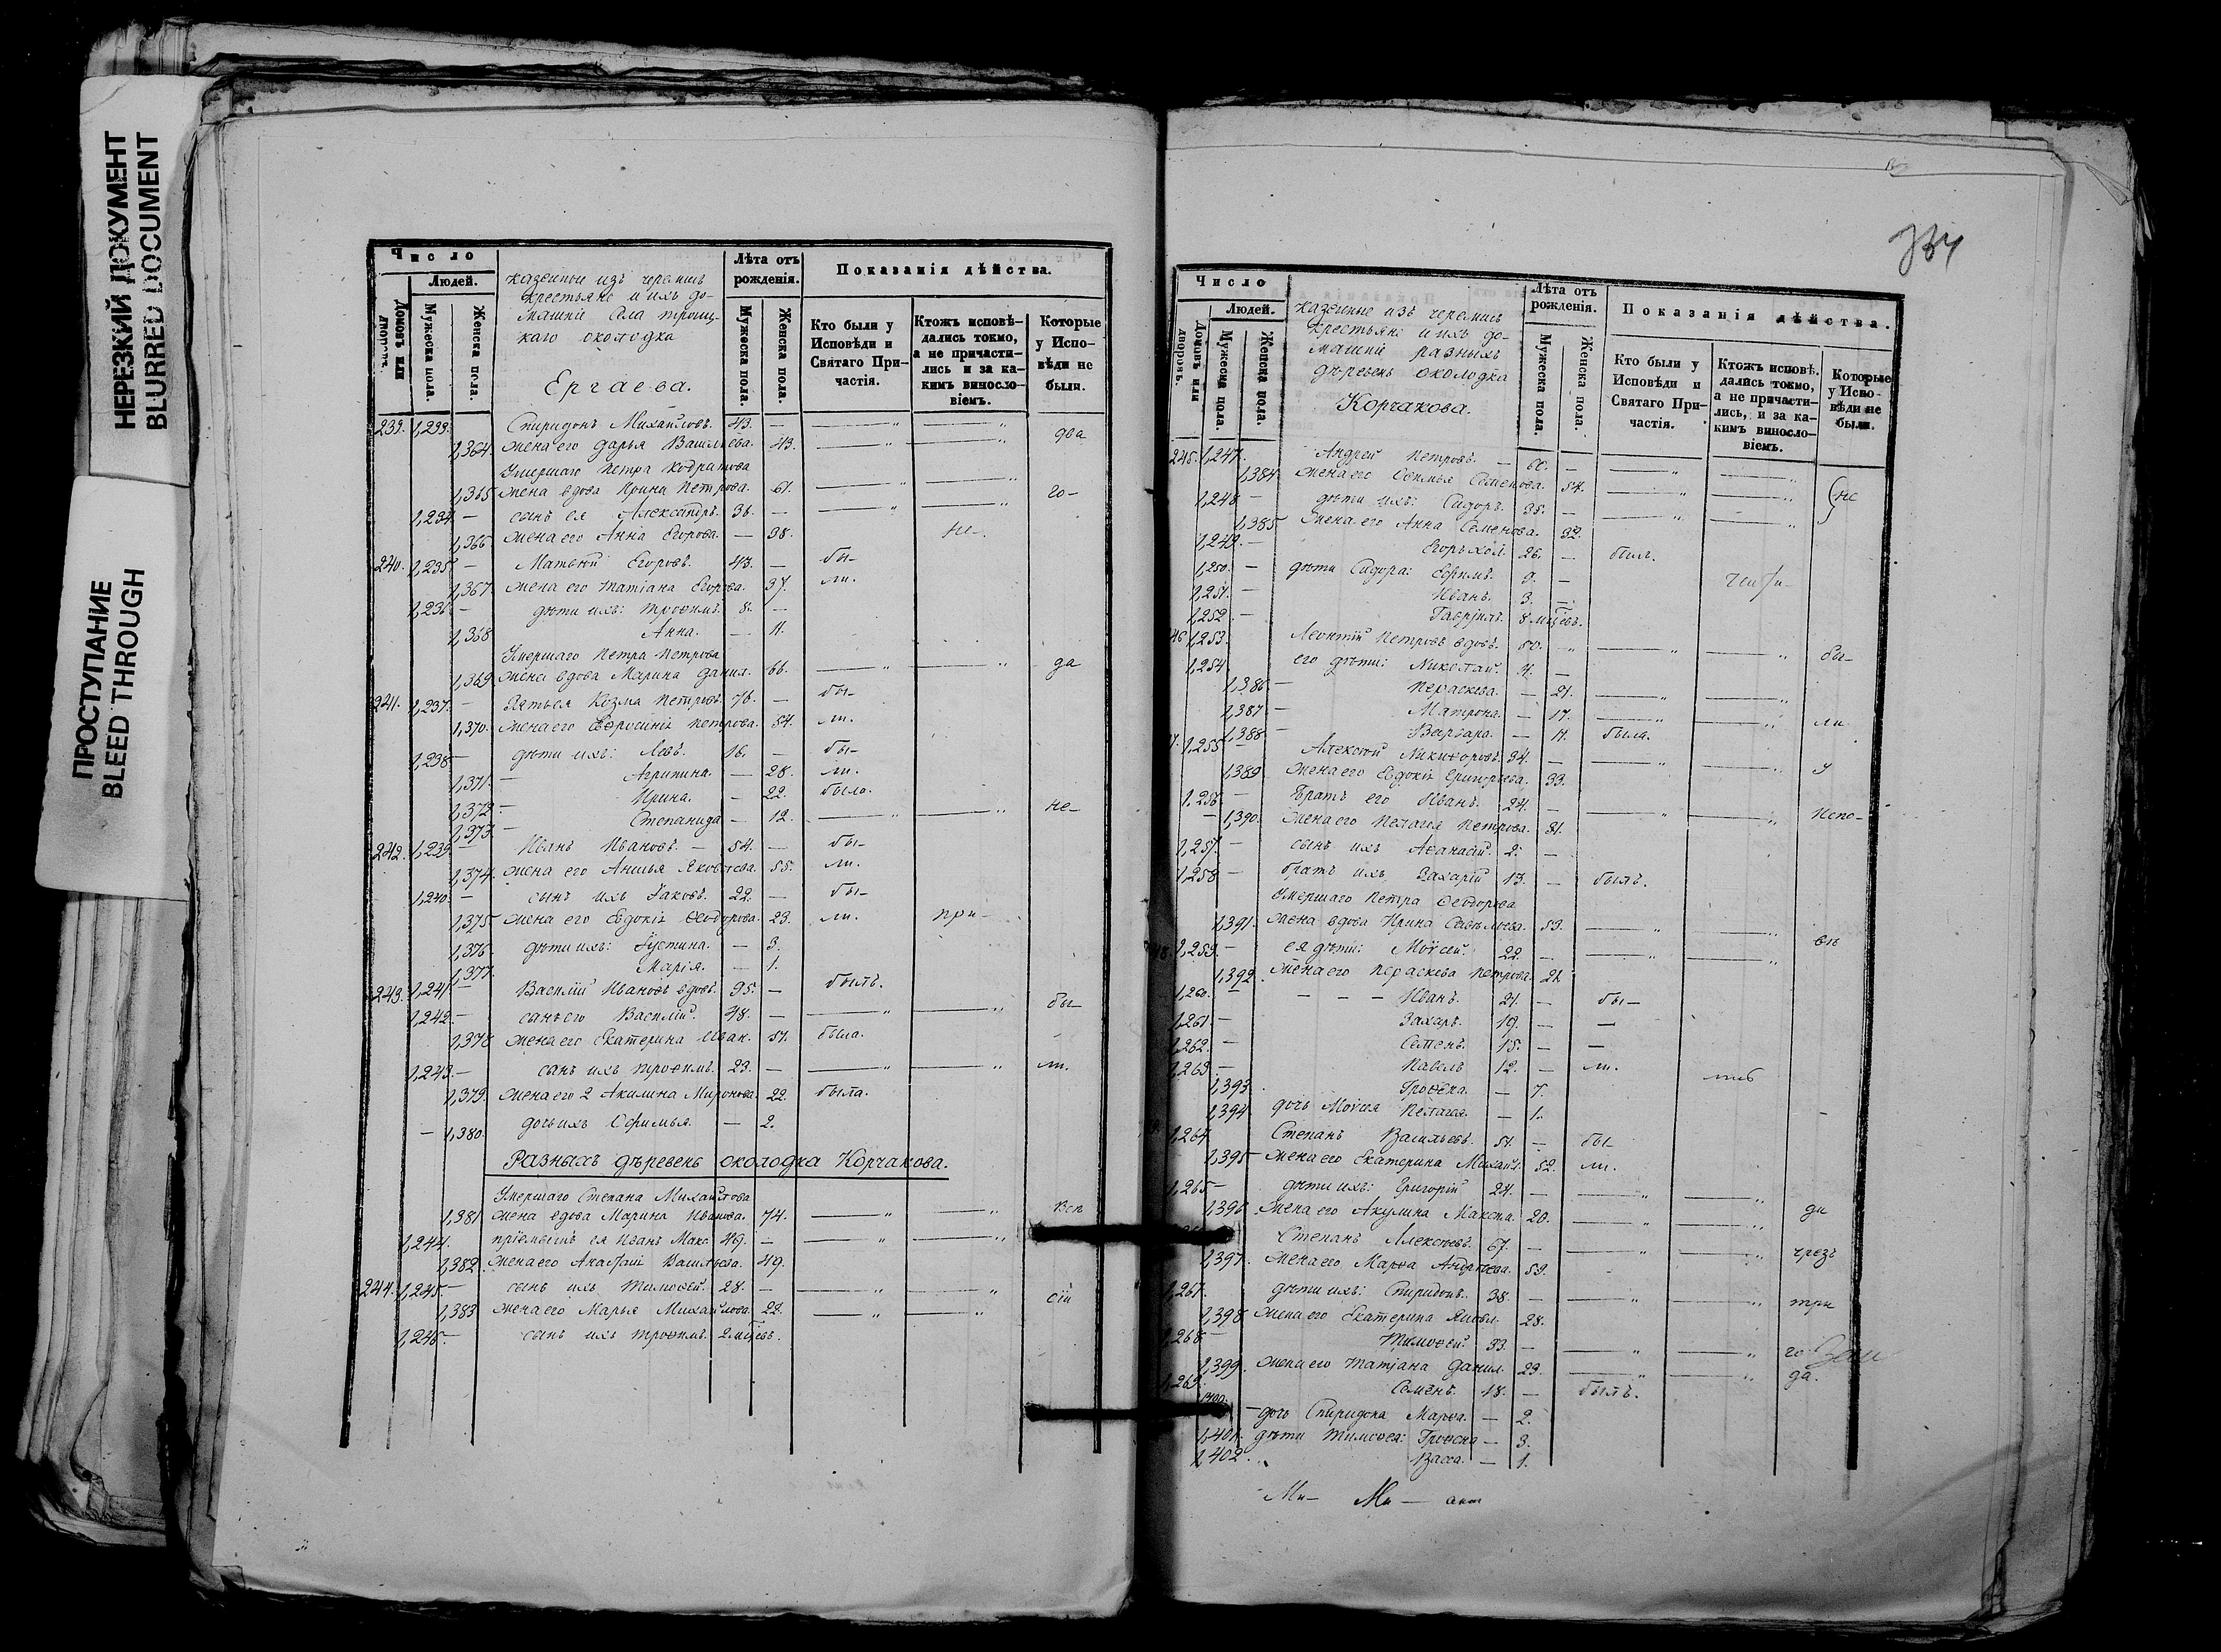 НЕРЕЗКИЙ ДОКУМЕНТ
BLURRED DOCUMENT
ПРОСТУПАНИЕ
BLEED THROUGH
Число
Людей.
Домовъ или дворовъ.
Мужеска пола.
Женска пола.
казенные изъ черемисъ
крестьяне и ихъ до-
машніе села троиц-
каго околодка
Ергаева.
Лѣта отъ рожденія.
Мужеска пола.
Женска пола.
Показанія дѣйства.
Кто были у Исповѣди и Святаго При-частія.
Ктожъ исповѣ-дались токмо, а не причасти-лись и за ка-кимъ винсло-віемъ.
Которые у Испо-вѣди не были.
239. 1,233. Спиридонъ Михайловъ. 43. —
1,364. жена его Дарья Васильева. 43. два
Умершаго Петра
1,365 жена вдова Ирина Петрова. 61. го-
1,234. — сынъ ея Александръ. 36. —
1,366 жена его Анна Егорова. — 38. не-
240. 1,235. — Матвѣй Егоровъ. 43. — бы-
1,367. жена его Татіана Егорова. 37. ли.
1,236. — дѣти ихъ: Трофимъ. 8. —
1,368 Анна. — 11.
Умершаго Петра Петрова
1,369. жена вдова Марина Данил. 66. да
241. 1,237. — Козма Петровъ. 76. — бы-
1,370. жена его Евросинія Петрова. 54. ли.
1,238. — дѣти ихъ: Левъ. 16. — бы-
1,371. — Агрипина. — 28. ли.
1,372. — Ирина. — 22. была.
1,373. — Степанида — 12. не-
242. 1,239. — Иванъ Ивановъ. — 54. — бы-
1,374. жена его Яковлева. 55. ли.
1,240. — сынъ ихъ Іаковъ. 22. — бы-
1,375 жена его Евдокія Ѳеодорова. 23. ли. при-
1,376. дѣти ихъ: Іустина. — 3.
1,377. Марія. — 1.
243. 1,241. — Василій Ивановъ вдовъ. 95. — былъ.
1,242. — сынъ его Василій. 48. — бы-
1,378 жена его Екатерина Иван. 51. была.
1,243. — сынъ ихъ Трофимъ. 23. — ли.
1,379. жена его 2 Акилина Миронова. 22. была.
— 1,380. дочь ихъ Ефимья. — 2.
Разныхъ деревень околодка Корчакова.
Умершаго Степана Михайлова
1,381 жена вдова Марина Иванова. 74. Всѣ
1,244. пріемышъ ея Иванъ Макс. 49. —
1,382. жена его Анастасія Васильева. 49.
244. 1,245. — сынъ ихъ Тимоѳей. 28. — сіи
1,383 жена его Марья Михайлова. 22.
1,246. — сынъ ихъ Трофимъ. 2 мѣсевъ.
334
Число
Людей.
Домовъ или дворовъ.
Мужеска пола.
Женска пола.
казенные изъ черемисъ
крестьяне и ихъ до-
машніе разныхъ
деревень околодка
Корчакова.
Лѣта отъ рожденія.
Мужеска пола.
Женска пола.
Показанія дѣйства.
Кто были у Исповѣди и Святаго При-частія.
Ктожъ исповѣ-дались токмо, а не причасти-лись, и за ка-кимъ винсло-віемъ.
Которые у Испо-вѣди не были.
245. 1,247. Андрей Петровъ. — 60. —
1,384. жена его Семенова. 54. не
1,248 — дѣти ихъ: Сидоръ. 35. —
1,385 жена его Анна Семенова. 32.
1,249. — Егоръ хол. 26. — былъ.
1,250. — дѣти Сидора: Ефимъ. 9. —
1,251. — Иванъ. 3. —
1,252. — Гавріилъ. 8 мѣсевъ.
1,253. Леонтій Петровъ вдовъ. 50. бы-
1,254 его дѣти: Николай. 4. —
1,386. — Параскева. — 21.
1,387. — Матрона. — 17. ли
1,388. — Варвара. — 11. была.
1,255 — Алексѣй Никифоровъ. 34. — у
1,389. жена его Евдокія Григорьева. 33.
1,256. — Братъ его Иванъ. 24. —
1,390. жена его Пелагея Петрова. 31. Испо-
1,257. — сынъ ихъ Аѳанасій. 2. —
1,258 — братъ ихъ Захарій 13. — былъ.
Умершаго Петра Ѳеодорова
1,391. жена вдова Ирина Савельева. 53.
1,259. — ея дѣти: Моѵсей. 22. —
1,392. жена его Параскева Петрова. 21.
1,260. — — — — Иванъ. 21. — бы-
1,261. — Захаръ. 19. — —
1,262. — Семенъ. 15. — —
1,263. — Павелъ 12. — ли.
1,393. Ѳрофена. — 7.
1,394. дочь Моѵсея Пелагея. — 1.
1,264. Степанъ Васильевъ. 51. — бы-
1,395 — жена его Екатерина Михайл. 52. ли.
1,265 — дѣти ихъ: Григорій 24. —
1,396. жена его Акулина Макс. 20. ди
Степанъ Алексѣевъ. 67. — чрезъ
1,397. жена его Марѳа Андреева. 59.
1,267. дѣти ихъ: Спиридонъ. 38. — три
1,398 жена его Екатерина Яковл. 28.
1,268. — Тимоѳей. 33. — го
1,399. жена его Татіана Данил. 29. да.
1,269. Семенъ. 18. — былъ.
1400. — дочь Спиридона Марѳа. — 2.
1,401. дѣти Тимоѳея: — 3.
1,402. Васса. — 1.